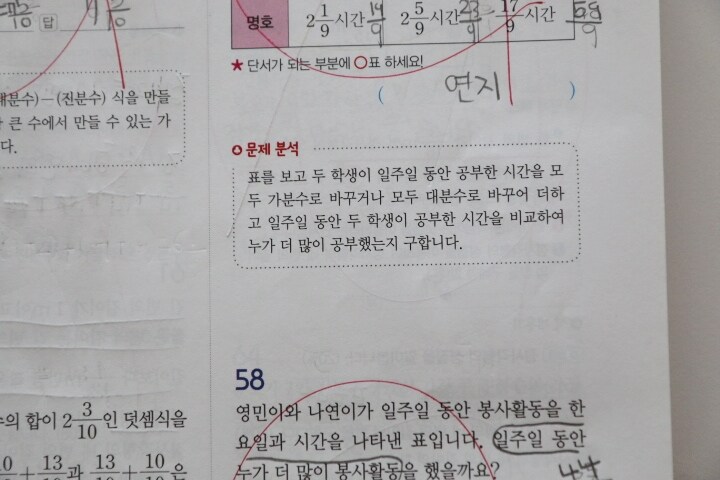 답
명호 2 1/9 시간 19/9 2 5/9 시간 23/9 17/9 시간
★ 단서가 되는 부분에 ○표 하세요!
( 연지 )
대분수)-(진분수) 식을 만들
큰 수에서 만들 수 있는 가
다.
문제 분석
표를 보고 두 학생이 일주일 동안 공부한 시간을 모
두 가분수로 바꾸거나 모두 대분수로 바꾸어 더하
고 일주일 동안 두 학생이 공부한 시간을 비교하여
누가 더 많이 공부했는지 구합니다.
수의 합이 2 3/10 인 덧셈식을
+ 13/10 과 13/10 + 10/10 은
58
영민이와 나연이가 일주일 동안 봉사활동을 한
요일과 시간을 나타낸 표입니다. 일주일 동안
누가 더 많이 봉사활동을 했을까요?